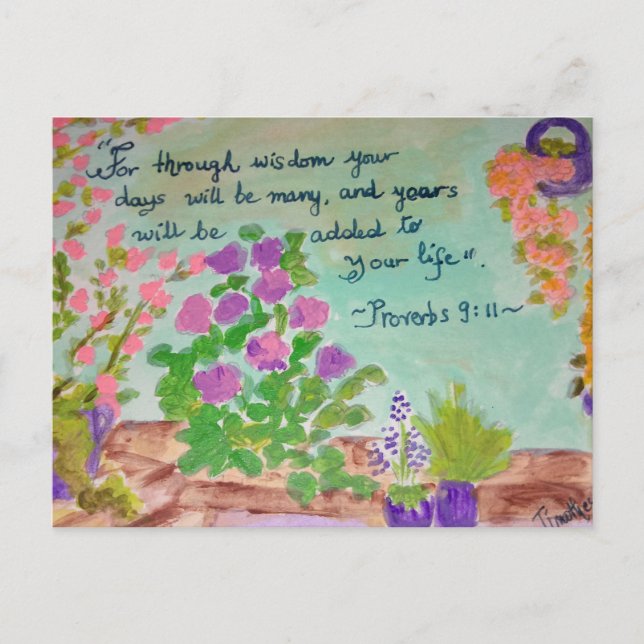 "For through wisdom your
days will be many, and years
will be added to
your life".
~Proverbs 9:11~